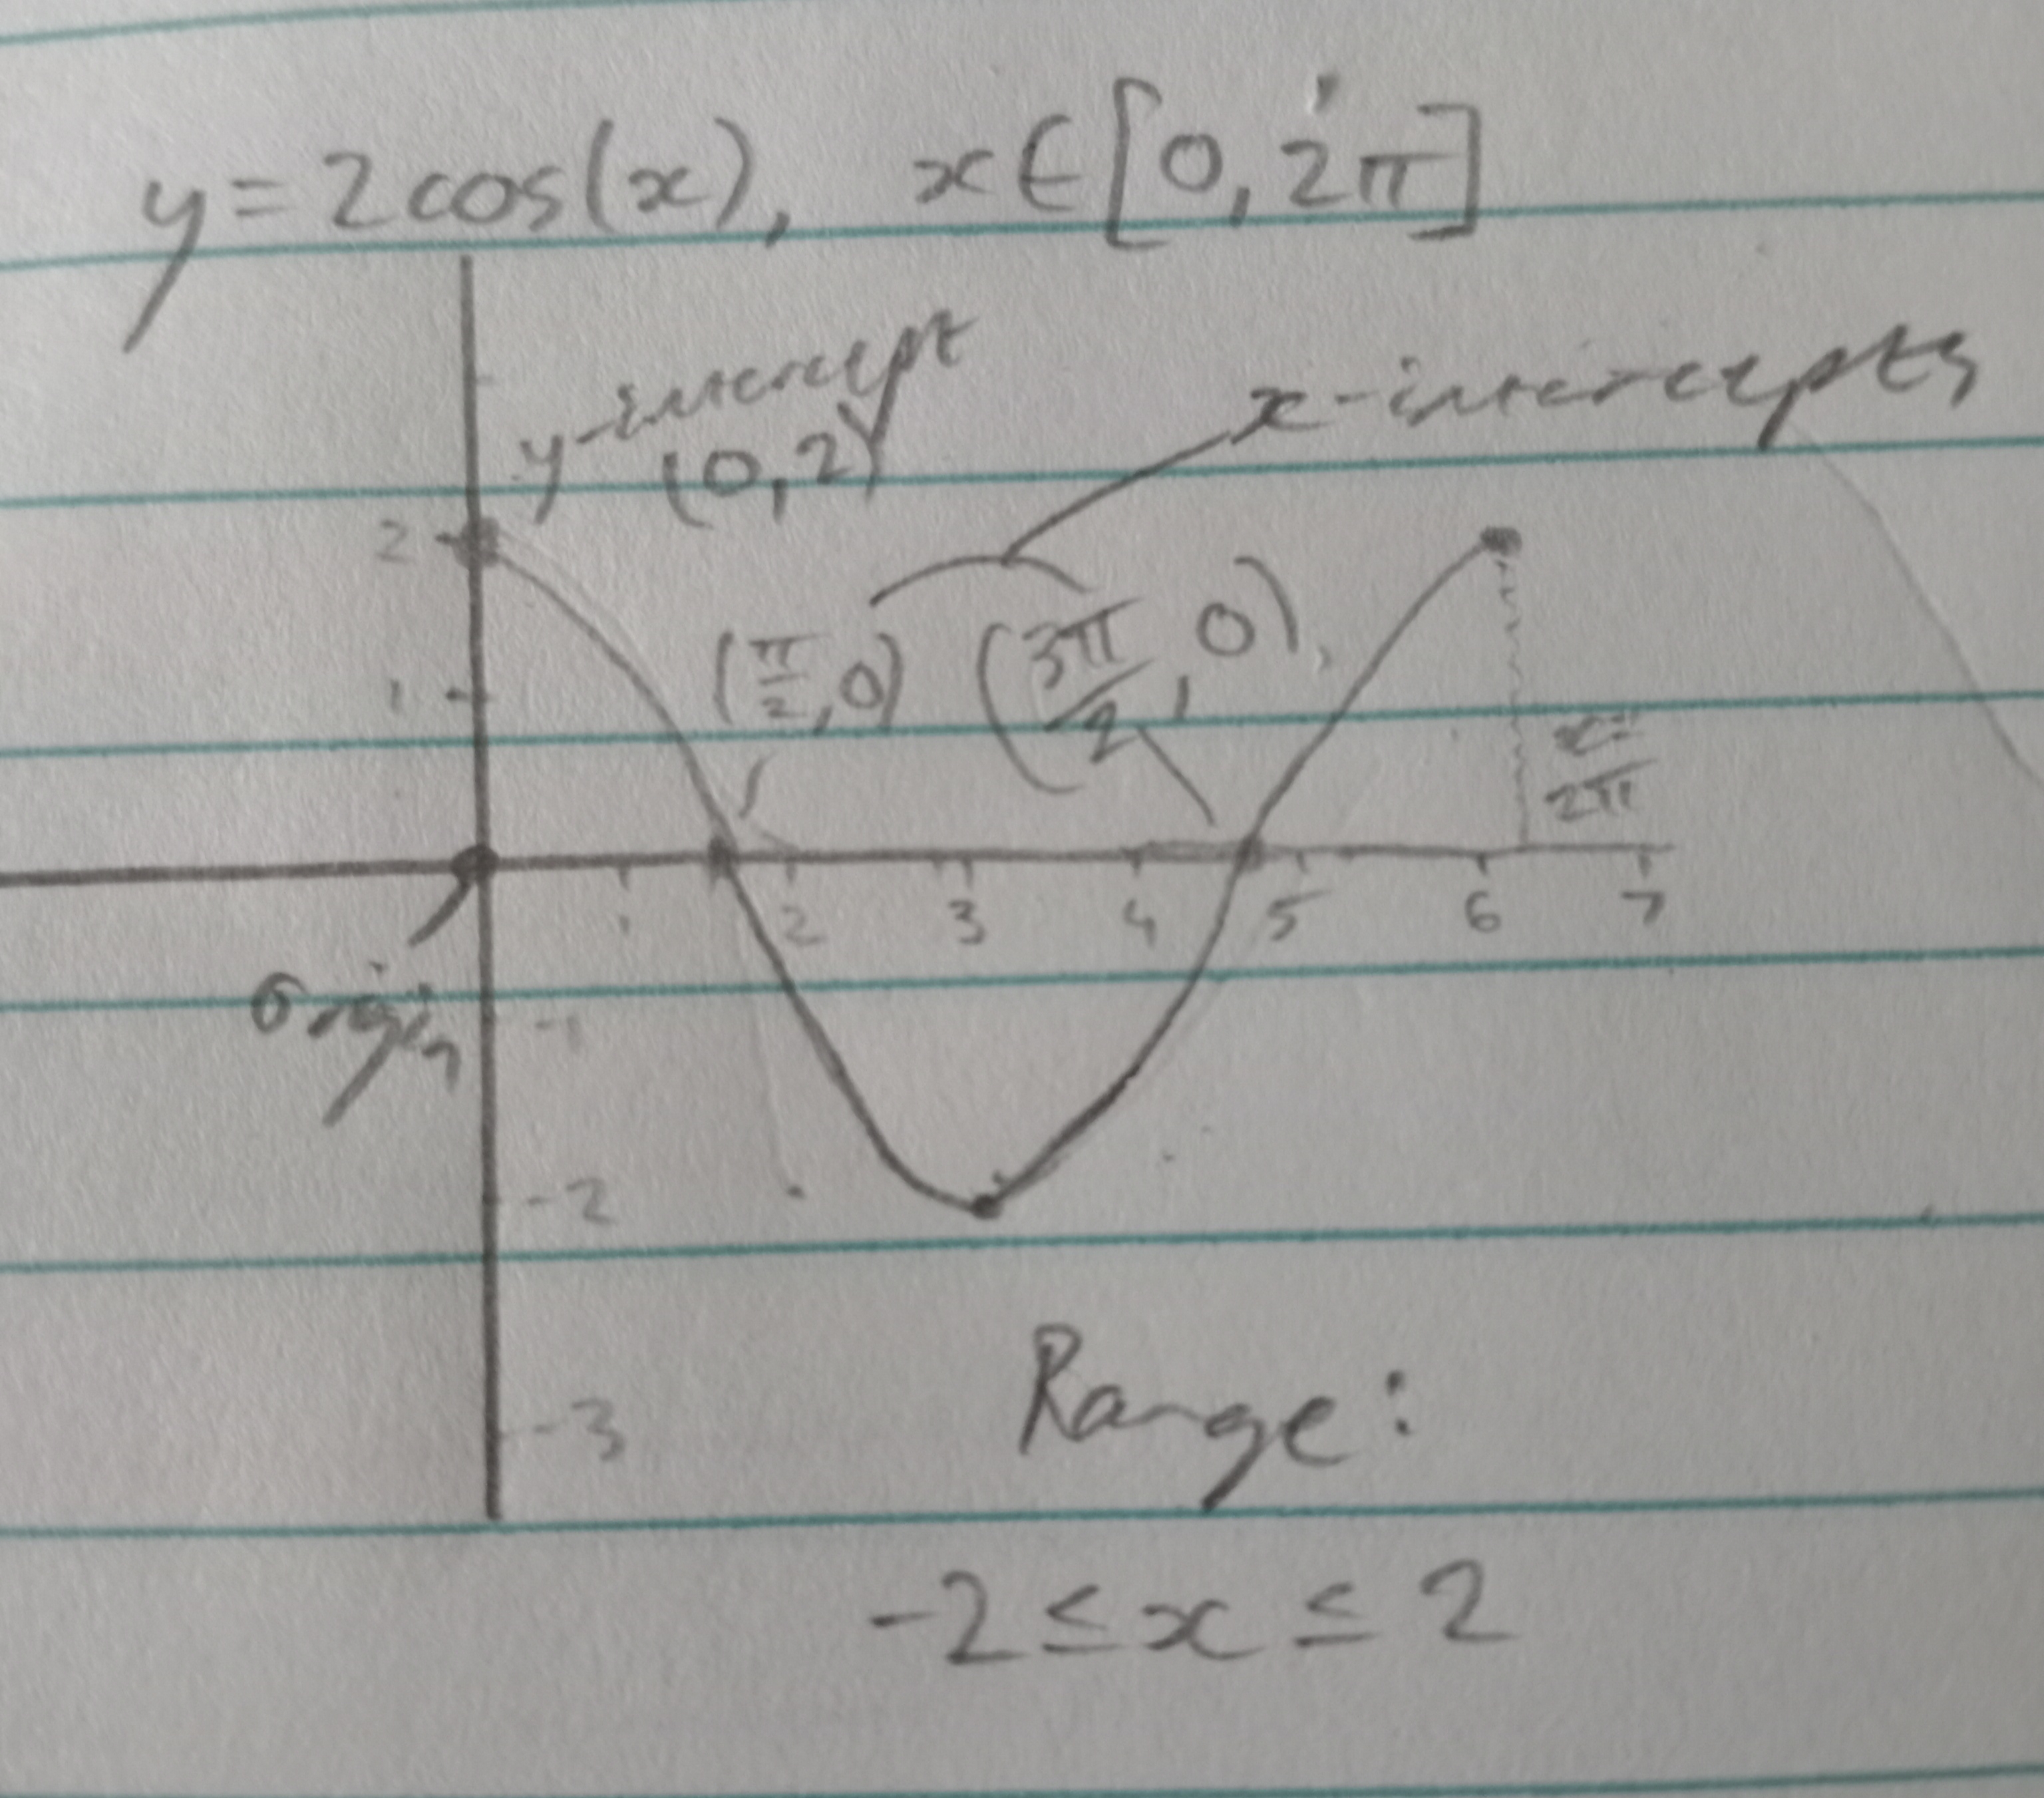 y = 2cos(x), x ∈ [0, 2π]
y-intercept
(0, 2)
x-intercepts
2
(π/2, 0) (3π/2, 0)
1
x=
2π
1 2 3 4 5 6 7
Origin
-1
-2
-3
Range:
-2 ≤ x ≤ 2